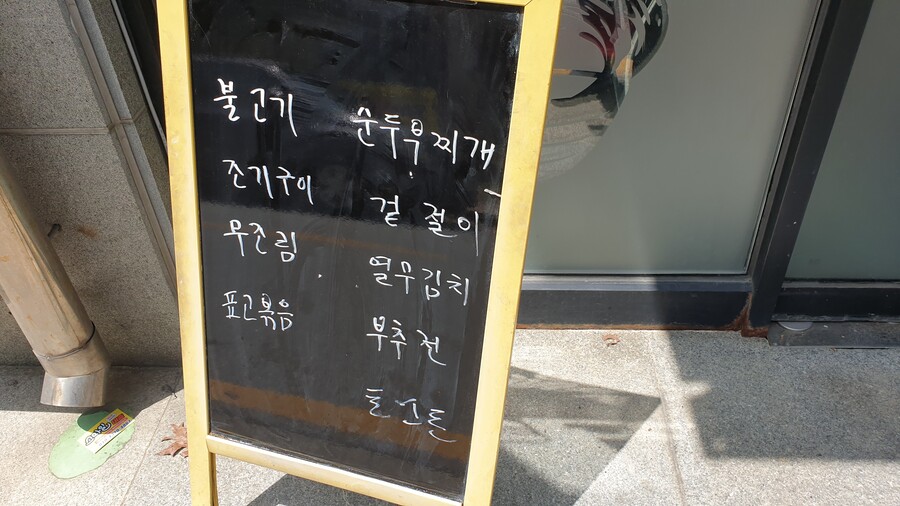 불고기
조기구이
무조림
표고볶음
순두부찌개
겉절이
열무김치
부추전